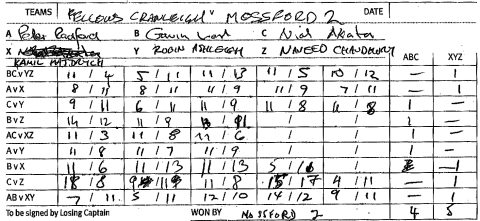 TEAMS FELLOWS CRANLEIGH V MOSSFORD 2 DATE
A Peter Radford B Gavin C Nick
X KAMIL Y ROBIN ASHLEIGH Z NAVEED CHAUDHURY ABC XYZ
BCvYZ 11 / 4 5 / 11 11 / 13 11 / 5 10 / 12 — 1
AvX 8 / 11 8 / 11 11 / 9 11 / 9 7 / 11 — 1
CvY 9 / 11 11 / 9 11 / 8 1 —
BvZ 14 / 12 11 / 9 / / 1 —
ACvXZ 11 / 3 11 / 8 11 / 6 / / 1 —
AvY 11 / 8 11 / 7 11 / 9 / / 1 —
BvX 11 / 6 11 / 13 11 / 13 / — 1
CvZ 11 / 8 15 / 17 4 / 11 — 1
ABvXY 7 / 11 5 / 11 12 / 10 14 / 12 9 / 11 — 1
To be signed by Losing Captain WON BY MOSSFORD 2 4 5